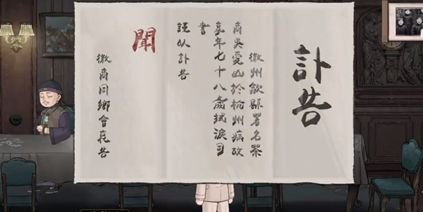 訃告
徽州歙縣著名茶
商吳憂山於杭州病故
享年七十八歲拭淚曰
書
謹以訃告
聞
徽商同鄉會哀告